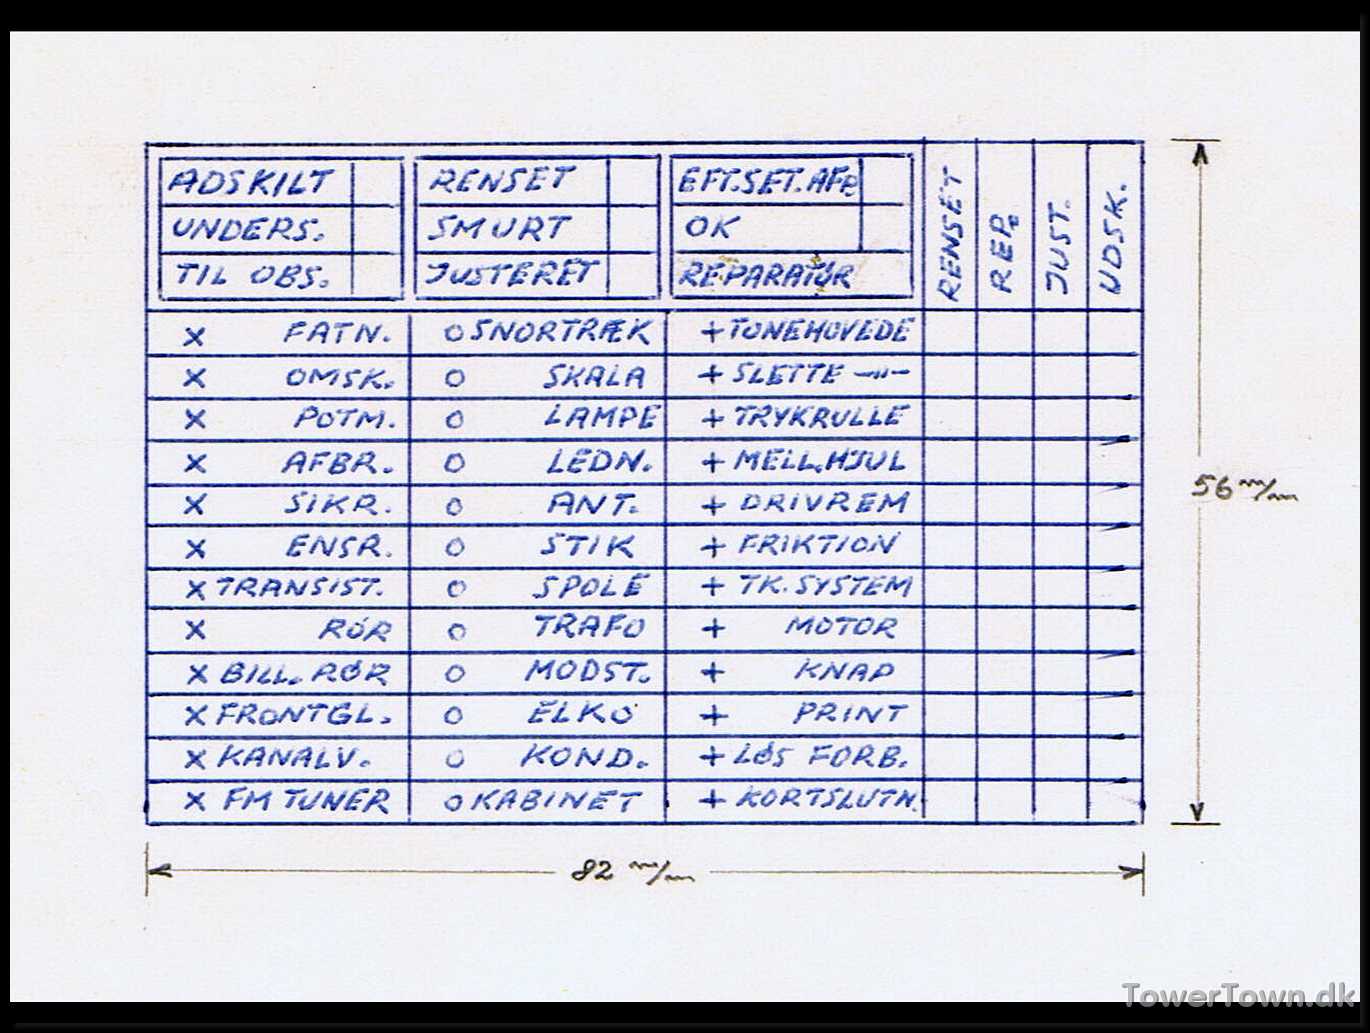 ADSKILT RENSET EFT.SET.AFP.
UNDERS. SMURT OK
TIL OBS. JUSTERET REPARATØR
RENSET
REP.
JUST.
UDSK.
X FATN. O SNORTRÆK + TONEHOVEDE
X OMSK. O SKALA + SLETTE —"—
X POTM. O LAMPE + TRYKRULLE
X AFBR. O LEDN. + MELL.HJUL
X SIKR. O ANT. + DRIVREM
X ENSR. O STIK + FRIKTION
X TRANSIST. O SPOLE + TK.SYSTEM
X RØR O TRAFO + MOTOR
X BILL. RØR O MODST. + KNAP
X FRONTGL. O ELKO + PRINT
X KANALV. O KOND. + LØS FORB.
X FM TUNER O KABINET + KORTSLUTN.
56 m/m
82 m/m
TowerTown.dk